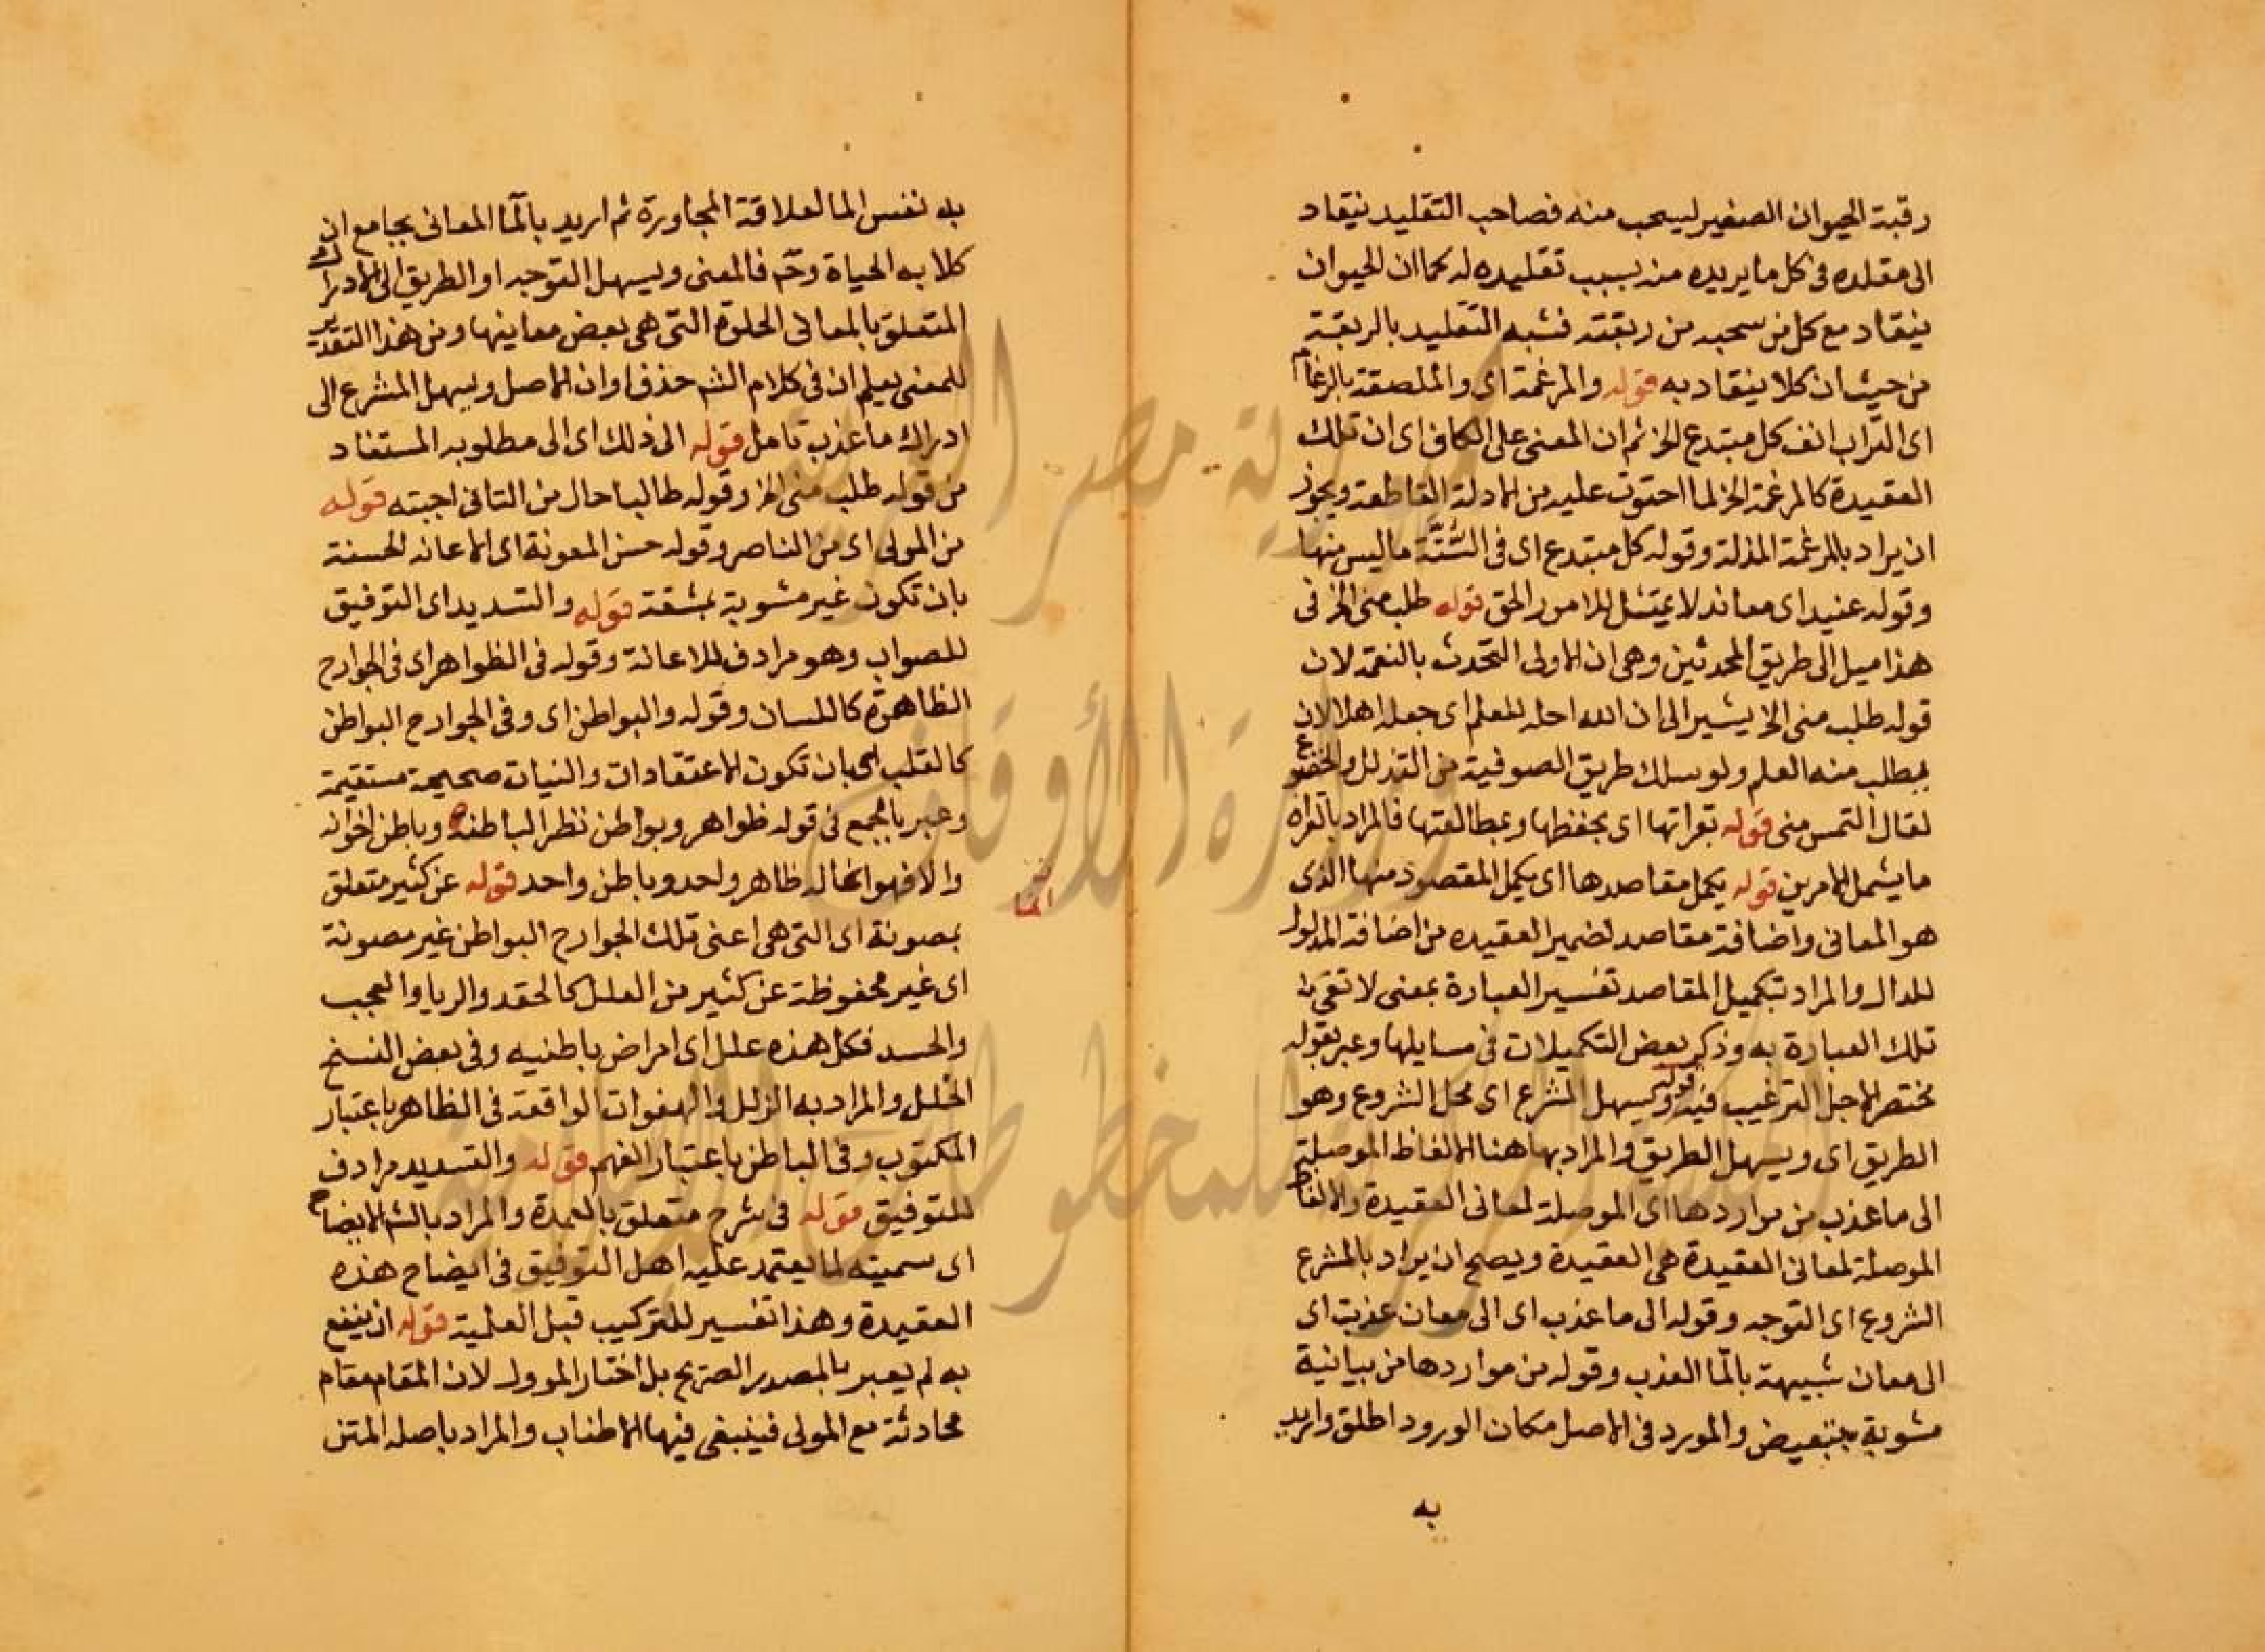 رقبة الحيوان الصغير ليسحب منه فصاحب التقليد ينقاد
الى مقلده فى كل ما يريده منه بسبب تقليده له كما ان الحيوان
ينقاد مع كل من سحبه من ربقته فشبه التقليد بالربقة
من حيث ان كلا ينقاد به قوله والمرغمة اى والملصقة بالرغام
اى التراب انف كل مبتدع الخ ثم ان المعنى على الكاف اى ان تلك
العقيدة كالمرغمة الخ لما احتوت عليه من الادلة القاطعة ويجوز
ان يراد بالمرغمة المذلة وقوله كل مبتدع اى فى السُّنَّة ما ليس منها
وقوله عنيد اى معاند لا يمتثل للامور الحق قوله طلب منى الخ فى
هذا ميل الى طريق المحدثين وهى ان الاولى التحدث بالنعمة لان
قوله طلب منى الخ يشير الى ان الله احله للعلم اى جعله اهلا لان
يطلب منه العلم ولو سلك طريق الصوفية من التذلل والخضوع
لقال التمس منى قوله بقراتها اى بحفظها وبمطالعتها فالمراد بالقراة
ما يشمل الامرين قوله يكمل مقاصدها اى يكمل المقصود منها الذى
هو المعانى واضافة مقاصد لضمير العقيده من اضافة المدلول
للدال والمراد بتكميل المقاصد تفسير العبارة بمعنى لا تفى
تلك العبارة به وذكر بعض التكميلات فى مسايلها وعبر بقوله
مختصر لاجل الترغيب فيه قوله ويسهل المشرع اى محل الشروع وهو
الطريق اى ويسهل الطريق والمراد بها هنا الالفاظ الموصلة
الى ما عذب من مواردها اى الموصلة لمعانى العقيدة والالفاظ
الموصلة لمعانى العقيدة هى العقيدة ويصح ان يراد بالمشرع
الشروع اى التوجه وقوله الى ما عذب اى الى معان عذبت اى
الى معان شبيهة بالما العذب وقوله من مواردها من بيانية
مشوبة بتبعيض والمورد فى الاصل مكان الورود اطلق واريد
به
به نفس الما لعلاقة المجاورة ثم اريد بالما المعانى بجامع ان
كلا به الحياة وح فالمعنى ويسهل التوجه او الطريق الى الادراك
المتعلق بالمعانى الحلوة التى هى بعض معاينها ومن هذا التقدير
للمعنى يعلم ان فى كلام الش حذفا وان الاصل ويسهل المشرع الى
ادراك ما عذب تامل قوله الى ذلك اى الى مطلوبه المستفاد
من قوله طلب منى الخ وقوله طالبا حال من التا فى اجبته قوله
من المولى اى من الناصر وقوله حسن المعونة اى الاعانه الحسنة
بان تكون غير مشوبة بمشقة قوله والتسديد اى التوفيق
للصواب وهو مرادف للاعانة وقوله فى الظواهر اى فى الجوارح
الظاهرة كاللسان وقوله والبواطن اى وفى الجوارح البواطن
كالقلب اى بان تكون الاعتقادات والنيات صحيحة مستقيمة
وعبر بالجمع فى قوله ظواهر وبواطن نظرا لباطنه وباطن اخوانه
والا فهو انما له ظاهر واحد وباطن واحد قوله عن كثير متعلق
انما
بمصونة اى التى هى اعنى تلك الجوارح البواطن غير مصونة
اى غير محفوظة عن كثير من العلل كالحقد والريا والعجب
والحسد فكل هذه علل اى امراض باطنيه وفى بعض النسخ
الخلل والمراد به الزلل والهفوات الواقعة فى الظاهر باعتبار
المكتوب وفى الباطن باعتبار الفهم قوله والتسديد مرادف
للتوفيق قوله فى شرح متعلق بالعمدة والمراد بالش الايضاح
اى سميته لما يعتمد عليه اهل التوفيق فى ايضاح هذه
العقيدة وهذا تفسير للتركيب قبل العلمية قوله ان ينفع
به لم يعبر بالمصدر الصريح بل اختار الموول لان المقام مقام
محادثة مع المولى فينبغى فيها الاطناب والمراد باصله المتن
جمهورية مصر العربية
وزارة الأوقاف
المكتبة المركزية للمخطوطات الإسلامية